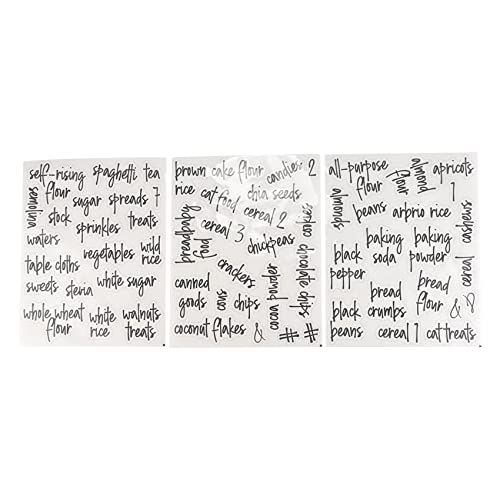 self-rising flour
spaghetti
tea
semolina
sugar
spreads
7
stock
sprinkles
treats
waters
vegetables
wild rice
table cloths
sweets
steria
white sugar
whole wheat flour
white rice
walnuts
treats
brown rice
cake flour
candies
2
cat food
chia seeds
cereal 2
cereal 3
cookies
chickpeas
crackers
chocolate chips
canned goods
cous
chips
cocoa powder
coconut flakes
&
#
#
all-purpose flour
almond flour
apricots
1
almonds
beans
arprio rice
cashews
black pepper
baking soda
baking powder
cereal
black beans
bread crumbs
bread flour
&
cereal 1
cat treats